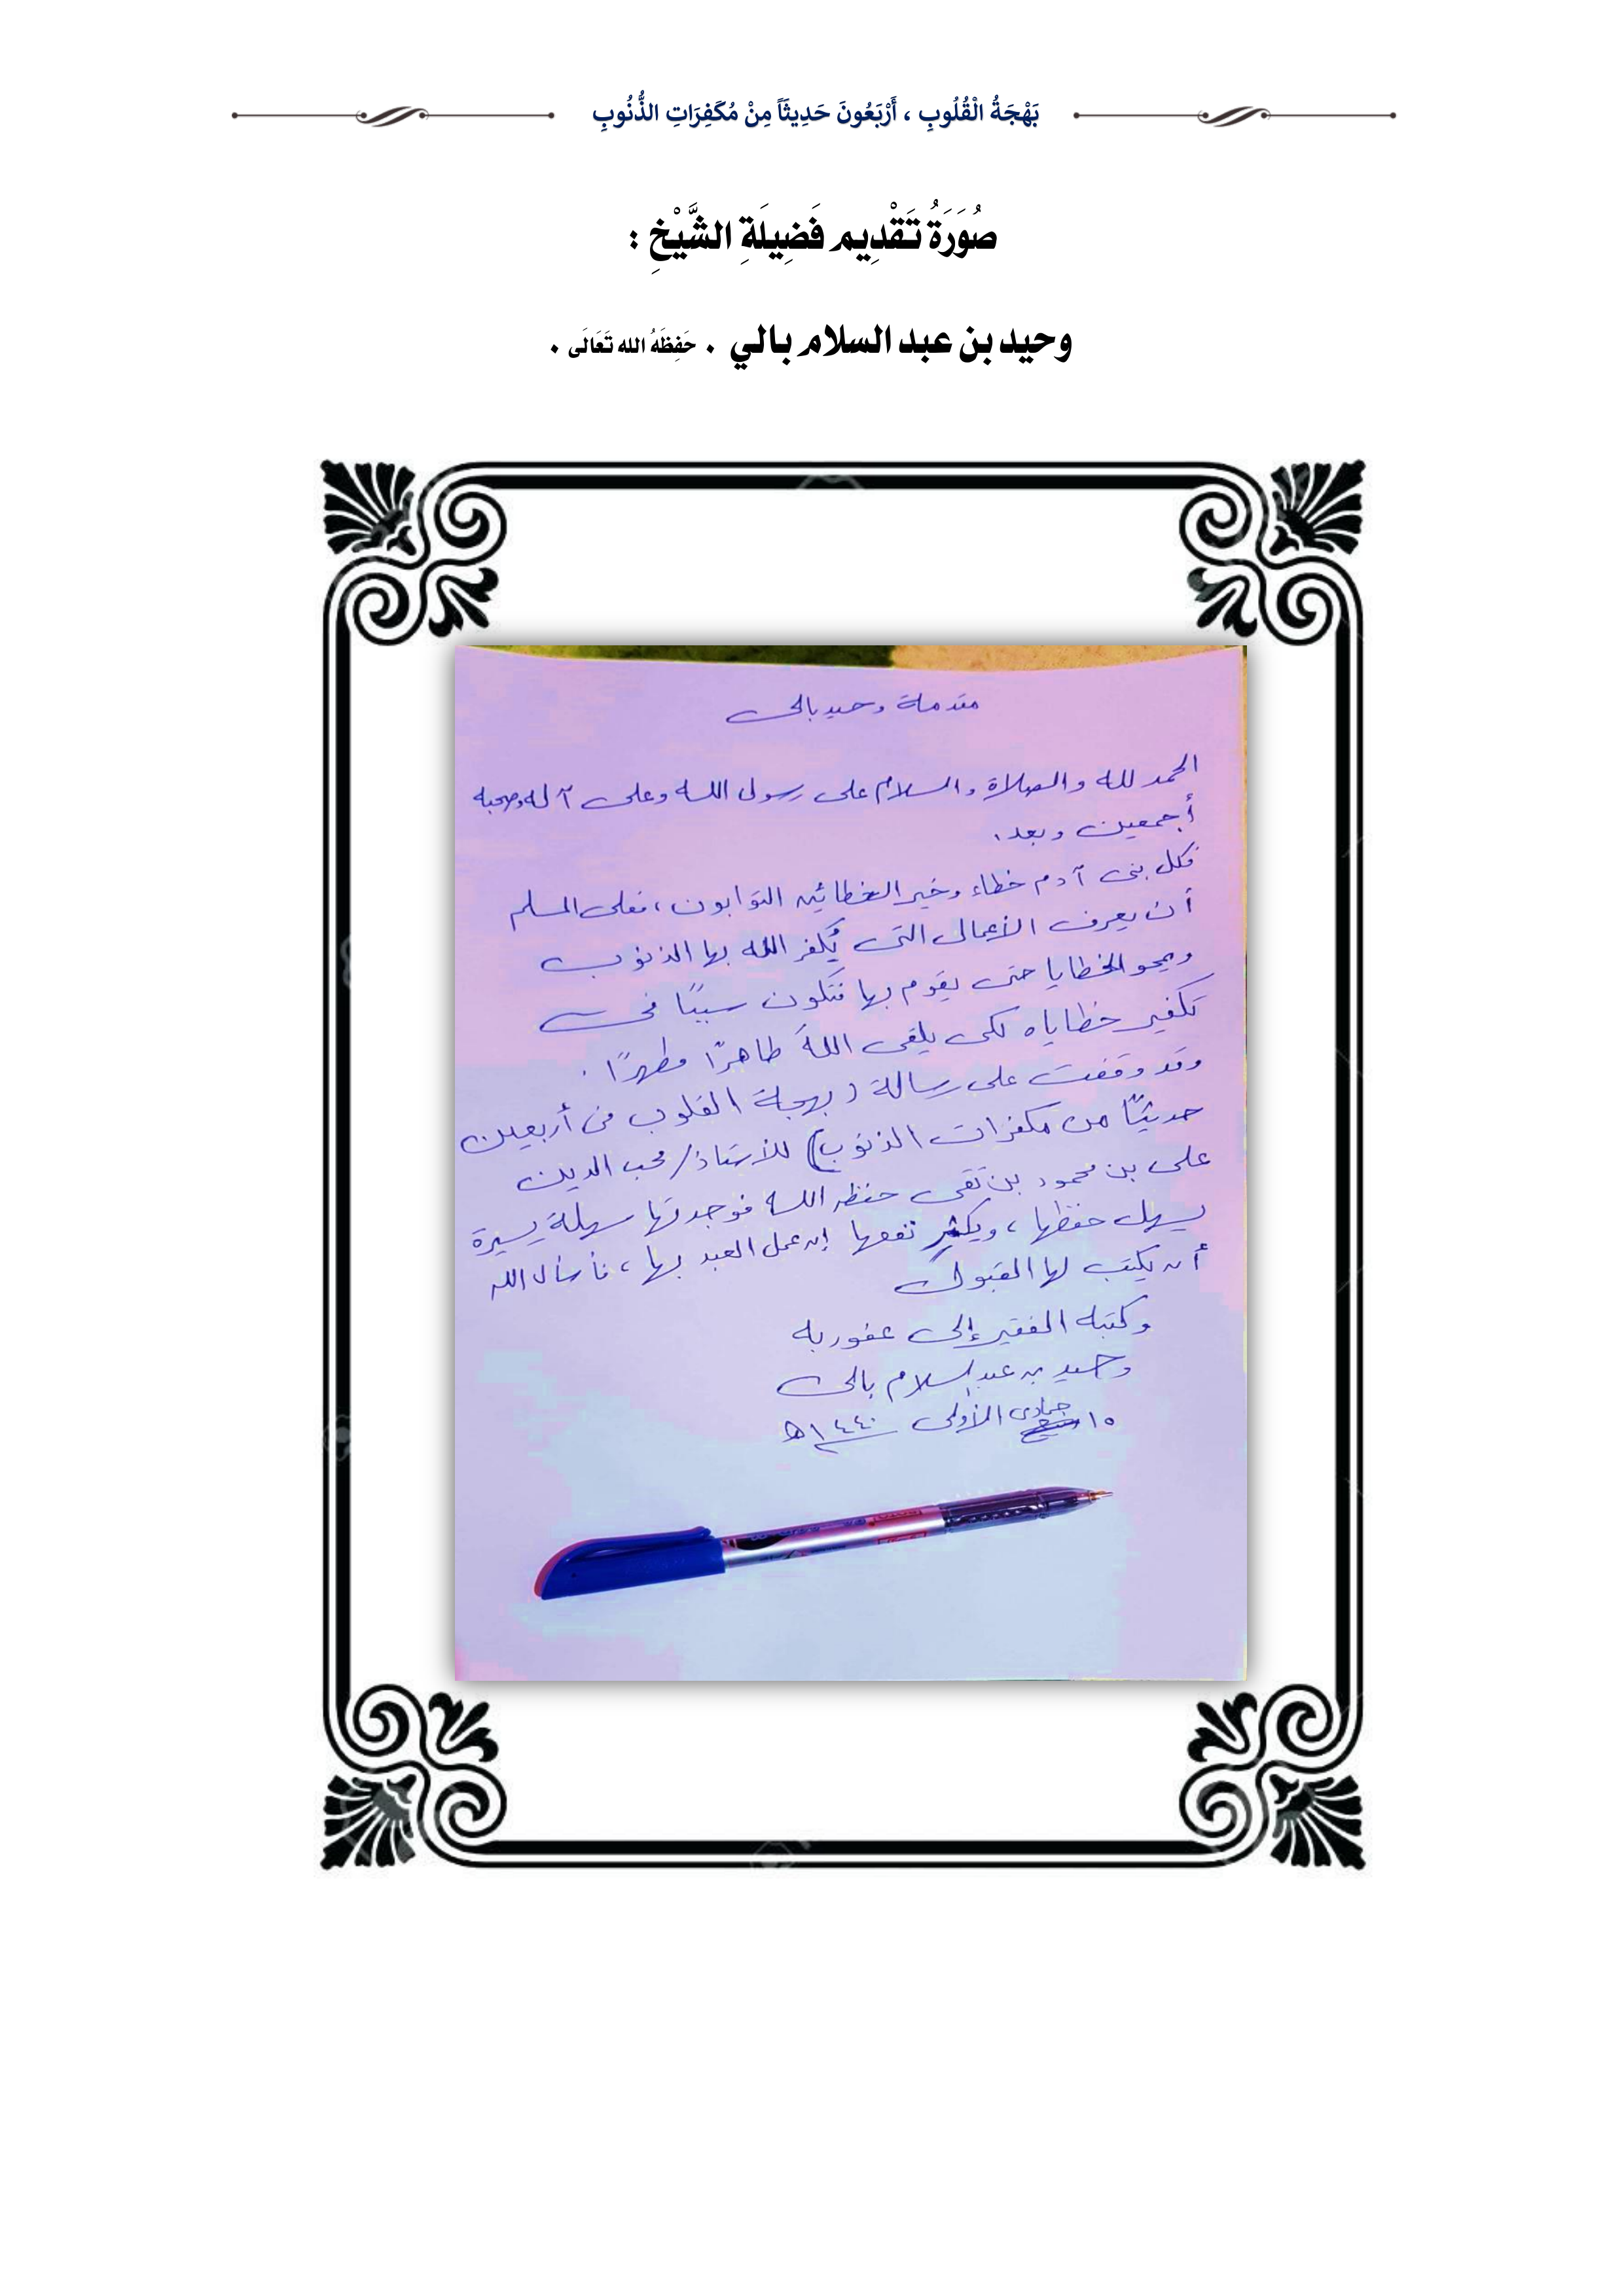 بَهْجَةُ الْقُلُوبِ ، أَرْبَعُونَ حَدِيثَاً مِنْ مُكَفِرَاتِ الذُّنُوبِ
صُوَرَةُ تَقْدِيم فَضِيلَةِ الشَّيْخِ :
وحيد بن عبد السلام بالي . حَفِظَهُ الله تَعَالَى .
مقدمة وحيد بالى
الحمد لله والصلاة والسلام على رسول الله وعلى آله وصحبه
أجمعين وبعد.
فكل بنى آدم خطاء وخير الخطائين التوابون، فعلى المسلم
أن يعرف الأعمال التى يُكفر الله بها الذنوب
ويمحو الخطايا حتى يقوم بها فتكون سببًا فى
تكفير خطاياه لكى يلقى اللهَ طاهرًا مطهرًا.
وقد وقفت على رسالة (بهجة القلوب فى أربعين
حديثًا من مكفرات الذنوب) للأستاذ/ محب الدين
على بن محمود بن تقى حفظه الله فوجدتها سهلة يسيرة
يسهل حفظها، ويكثر نفعها إن عمل العبد بها، فأسأل الله
أن يكتب لها القبول
وكتبه الفقير إلى عفو ربه
وحيد بن عبد السلام بالى
١٥ جمادى الأولى ١٤٤٠ هـ